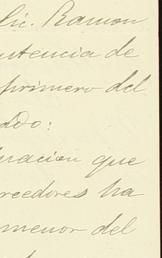 Lic. Ramon
ntencia de
primero del
ddo:
uracion que
reedores ha
menor del